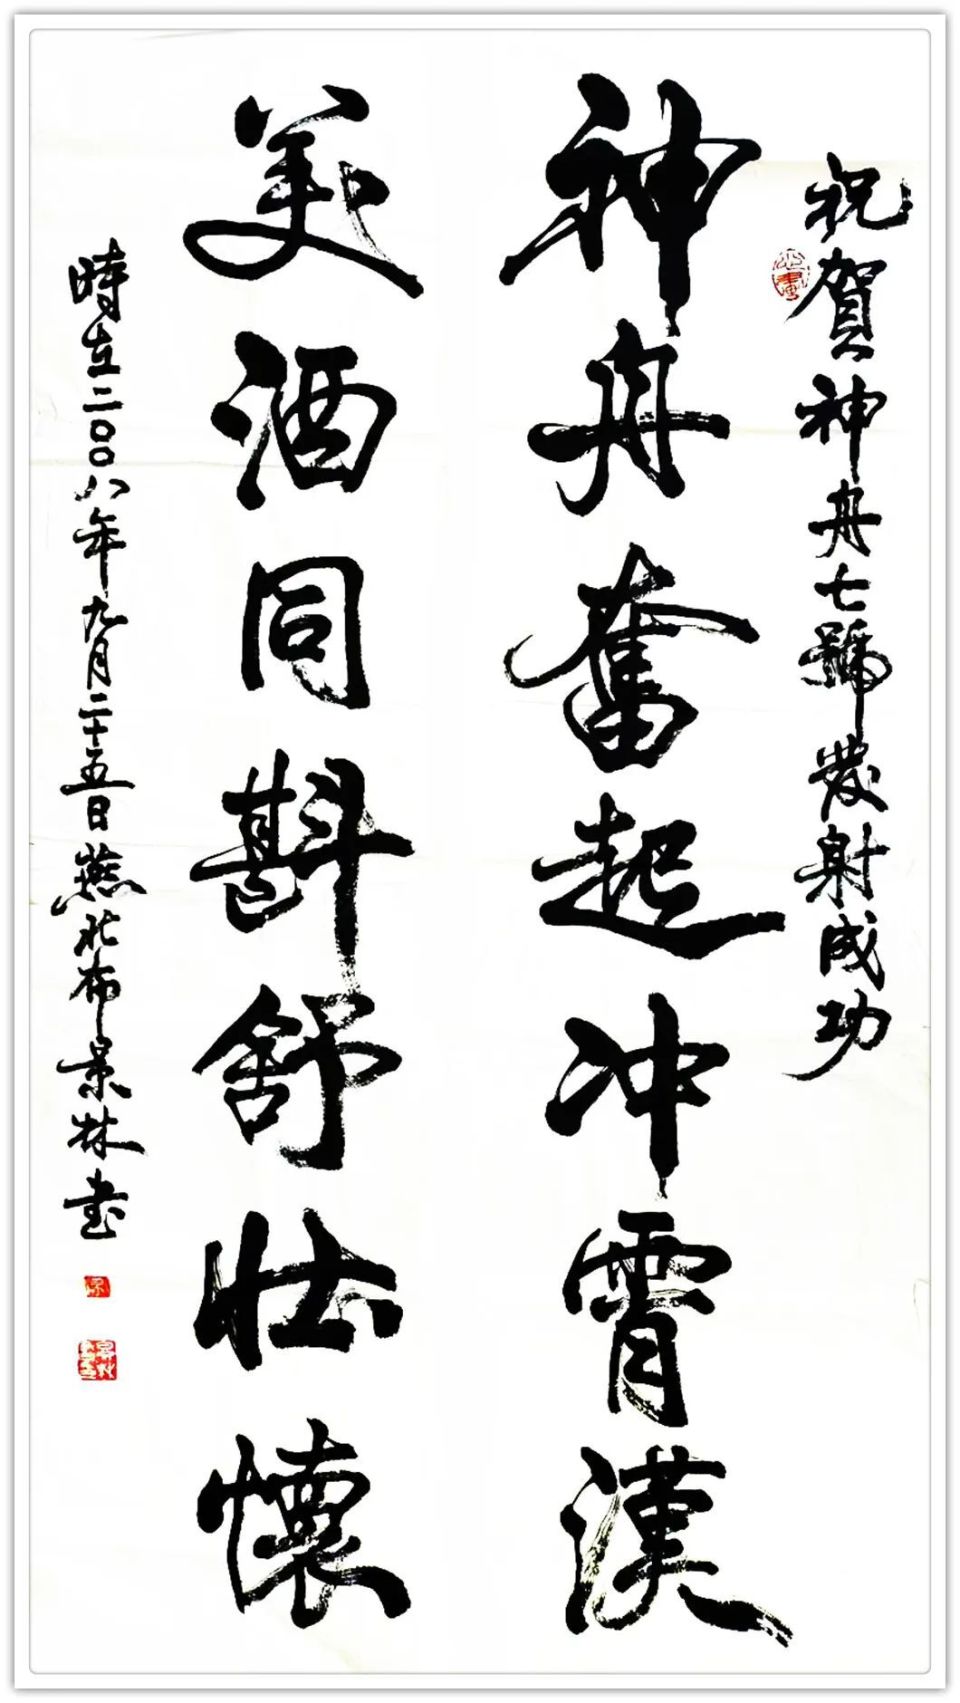 祝賀神舟七號發射成功
神舟奮起冲霄漢
美酒同斟舒壯懷
時在二〇〇八年九月二十五日燕北布景林書